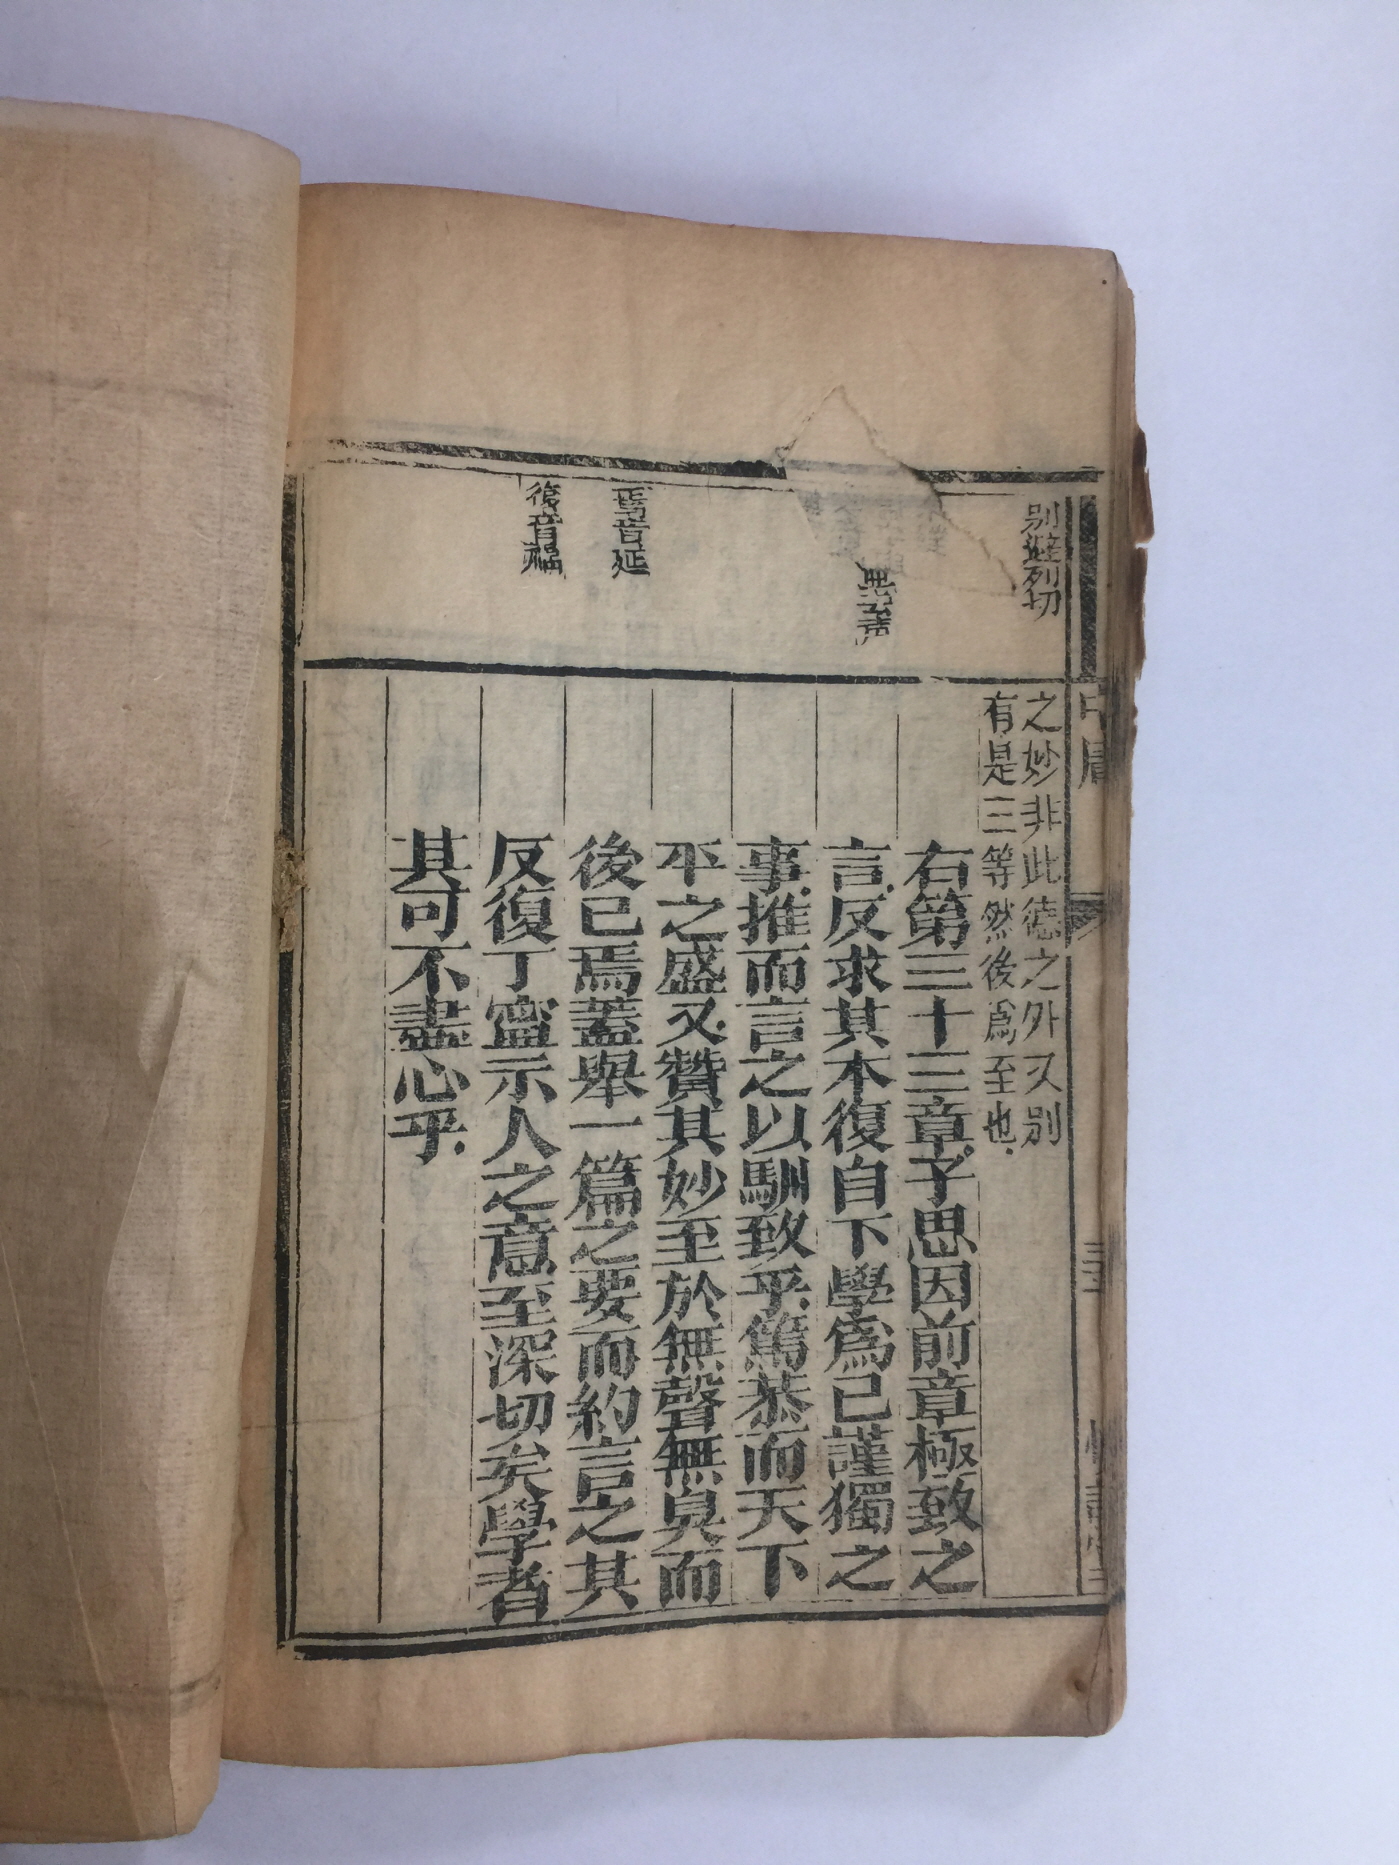 中庸
別避列切
焉音延
復音福
之妙非此德之外又別
有是三等然後爲至也
右第三十三章子思因前章極致之
言反求其本復自下學爲已謹獨之
事推而言之以馴致乎篤恭而天下
平之盛又贊其妙至於無聲無臭而
後已焉蓋舉一篇之要而約言之其
反復丁寧示人之意至深切矣學者
其可不盡心乎